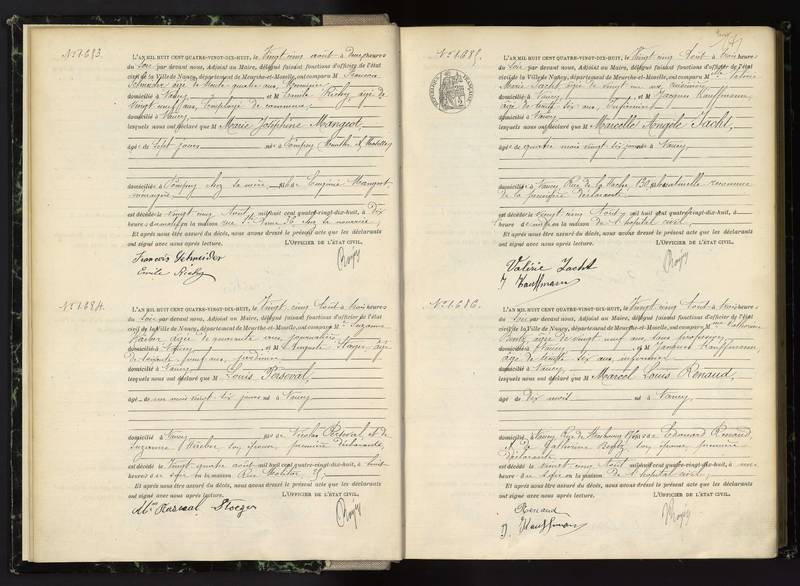 N° 1683.
L'AN MIL HUIT CENT QUATRE-VINGT-DIX-HUIT, le Vingt cinq août à deux heures
du soir par devant nous, Adjoint au Maire, délégué faisant fonctions d'officier de l'état
civil de la Ville de Nancy, département de Meurthe-et-Moselle, ont comparu M François
Schneider âgé de trente quatre ans,
domicilié à Nancy et M Emile Richy, âgé de
vingt neuf ans, employé de commerce,
domicilié à Nancy
lesquels nous ont déclaré que M Marie Joséphine Mangeot,
âgée de sept jours née à Pompey Meurthe et Moselle,
domiciliée à Pompey chez sa mère Eugénie Mangeot
est décédée le vingt cinq août mil huit cent quatre-vingt-dix-huit, à dix
heures du matin en la maison rue
Et après nous être assuré du décès, nous avons dressé le présent acte que les déclarants
ont signé avec nous après lecture. L'OFFICIER DE L'ÉTAT CIVIL,
François Schneider
Emile Richy
N° 1684.
L'AN MIL HUIT CENT QUATRE-VINGT-DIX-HUIT, le Vingt cinq août à trois heures
du soir par devant nous, Adjoint au Maire, délégué faisant fonctions d'officier de l'état
civil de la Ville de Nancy, département de Meurthe-et-Moselle, ont comparu M Suzanne
âgée de quarante ans, journalière
domiciliée à Nancy et M Auguste âgé
de soixante neuf ans, jardinier
domicilié à Nancy
lesquels nous ont déclaré que M Louis Perseval,
âgé de un mois vingt six jours né à Nancy
domicilié à Nancy fils de Nicolas Perseval et de
Suzanne son épouse, première déclarante
est décédé le vingt quatre août mil huit cent quatre-vingt-dix-huit, à huit
heures du soir en la maison Rue Molitor
Et après nous être assuré du décès, nous avons dressé le présent acte que les déclarants
ont signé avec nous après lecture. L'OFFICIER DE L'ÉTAT CIVIL,
N° 1685.
RÉPUBLIQUE FRANÇAISE
L'AN MIL HUIT CENT QUATRE-VINGT-DIX-HUIT, le Vingt cinq août à trois heures
du soir par devant nous, Adjoint au Maire, délégué faisant fonctions d'officier de l'état
civil de la Ville de Nancy, département de Meurthe-et-Moselle, ont comparu M Valérie
Marie Jacht, âgée de vingt
domiciliée à Nancy et M Jacques Kauffmann,
âgé de trente six ans, infirmier
domicilié à Nancy
lesquels nous ont déclaré que M Marcelle Angèle Jacht,
âgée de quatre mois vingt six jours née à Nancy,
domiciliée à Nancy, Rue de la
de la première déclarante
est décédée le vingt cinq août mil huit cent quatre-vingt-dix-huit, à
heures en la maison de l'hôpital civil,
Et après nous être assuré du décès, nous avons dressé le présent acte que les déclarants
ont signé avec nous après lecture. L'OFFICIER DE L'ÉTAT CIVIL,
Valérie Jacht
J Kauffmann
N° 1686.
L'AN MIL HUIT CENT QUATRE-VINGT-DIX-HUIT, le Vingt cinq août à trois heures
du soir par devant nous, Adjoint au Maire, délégué faisant fonctions d'officier de l'état
civil de la Ville de Nancy, département de Meurthe-et-Moselle, ont comparu M Catherine
âgée de vingt neuf ans, sans profession,
domiciliée à Nancy et M Jacques Kauffmann,
âgé de trente six ans, infirmier
domicilié à Nancy,
lesquels nous ont déclaré que M Marcel Louis Renaud,
âgé de dix mois né à Nancy,
domicilié à Nancy, Rue de Strasbourg fils de Edouard Renaud,
et de Catherine son épouse, première
déclarante
est décédé le vingt cinq août mil huit cent quatre-vingt-dix-huit, à
heures en la maison de l'hôpital civil,
Et après nous être assuré du décès, nous avons dressé le présent acte que les déclarants
ont signé avec nous après lecture. L'OFFICIER DE L'ÉTAT CIVIL,
Renaud
J. Kauffmann